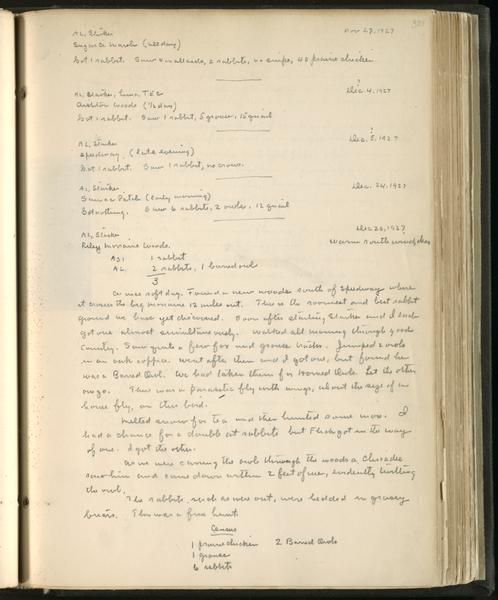 AL, Starker
Nov 27, 1927
Sugar Ck Marsh (all day)
Got 1 rabbit. Saw 6 mallards, 2 rabbits, no snipe, 40 prairie chicken.
AL, Starker, Luna, TEC
Dec. 4, 1927
Woods (½ day)
Got 1 rabbit. Saw 1 rabbit, 5 grouse, 15 quail
AL, Starker
Dec. 5, 1927
Speedway. (late evening)
Got 1 rabbit. Saw 1 rabbit, no crows.
AL, Starker
Dec. 24, 1927
Sumac Patch (early morning)
Got nothing. Saw 6 rabbits, 2 owls, 12 quail
AL, Starker
Dec 26, 1927
Riley Moraine Woods.
warm south wind
ASL 1 rabbit
AL 2 rabbits, 1 barred owl
3
A nice soft day. Found a new woods south of Speedway where
it crosses the big moraine 12 miles out. This is the roomiest and best rabbit
ground we have yet discovered. Soon after starting, Starker and I each
got one almost simultaneously. Walked all morning through good
country. Saw quite a few fox and grouse tracks. Jumped 2 owls
in an oak coppice. Went after them and I got one, but found her
was a Barred Owl. We had taken them for Horned Owls. Let the other
one go. There was a parasitic fly with wings, about the size of a
house fly, on this bird.
Melted snow for tea and then hunted some more. I
had a chance for a double at rabbits but Flick got in the way
of one. I got the other.
As we were carrying the owl through the woods a Chicadee
saw him and came down within 2 feet of me, evidently
the owl.
The rabbits, such as were out, were bedded in grassy
briars. This was a fine hunt.
Census
1 prairie chicken 2 Barred Owls
1 grouse
6 rabbits